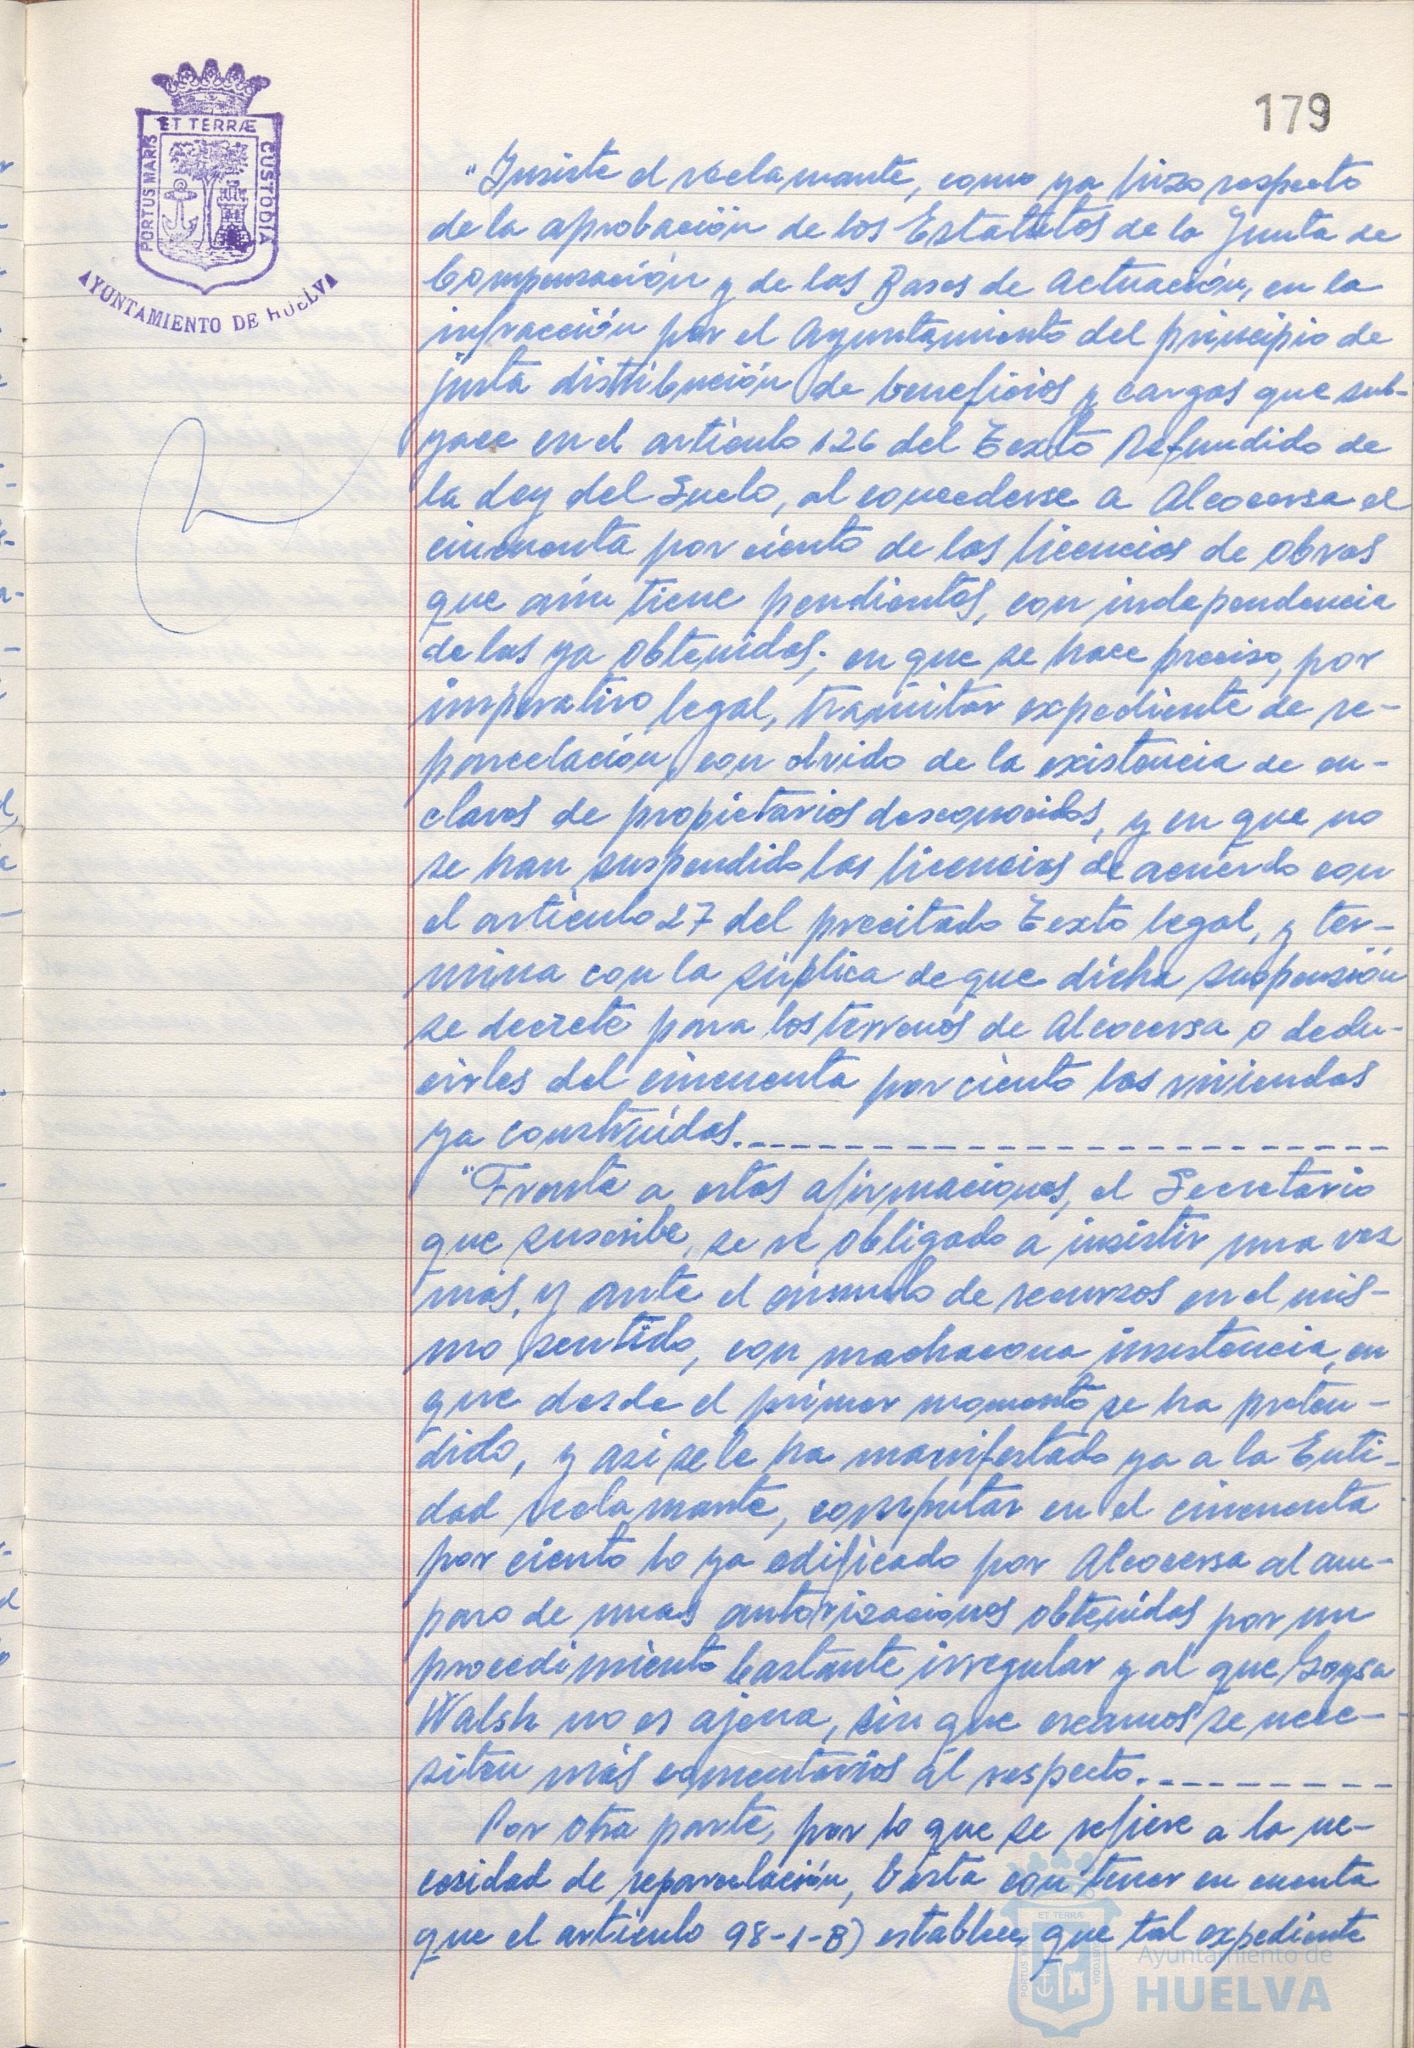 179
ET TERRÆ
PORTUS MARIS
CUSTODIA
AYUNTAMIENTO DE HUELVA
"Insiste el reclamante, como ya hizo respecto
de la aprobación de los Estatutos de la Junta de
Compensación y de las Bases de Actuación, en la
infracción por el Ayuntamiento del principio de
justa distribución de beneficios y cargas que sub-
yace en el artículo 126 del Texto Refundido de
la Ley del Suelo, al concederse a Alcocersa el
cincuenta por ciento de las licencias de obras
que aún tiene pendientes, con independencia
de las ya obtenidas; en que se hace preciso, por
imperativo legal, tramitar expediente de re-
parcelación, con olvido de la existencia de en-
claves de propietarios desconocidos, y en que no
se han suspendido las licencias de acuerdo con
el artículo 27 del precitado Texto legal, y ter-
mina con la súplica de que dicha suspensión
se decrete para los terrenos de Alcocersa o dedu-
cirles del cincuenta por ciento las viviendas
ya construidas.
"Frente a estas afirmaciones, el Secretario
que suscribe, se ve obligado a insistir una vez
más, y ante el cúmulo de recursos en el mis-
mo sentido, con machacona insistencia, en
que desde el primer momento se ha preten-
dido, y así se le ha manifestado ya a la Enti-
dad reclamante, computar en el cincuenta
por ciento lo ya edificado por Alcocersa al am-
paro de unas autorizaciones obtenidas por un
procedimiento bastante irregular y al que Goysa
Walsh no es ajena, sin que creamos se nece-
siten más comentarios al respecto.
Por otra parte, por lo que se refiere a la ne-
cesidad de reparcelación, basta con tener en cuenta
que el artículo 98-1-B) establece que tal expediente
ET TERRÆ
Ayuntamiento de
HUELVA